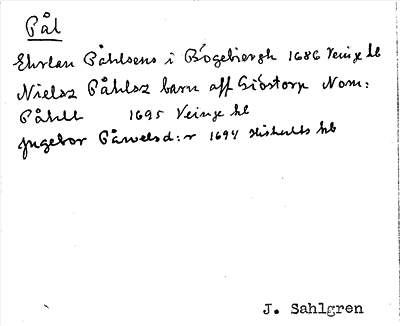 Pål
Ehrlan Påhlsens i Bögebiergh 1686 Veinge kb
Nielsz Påhlsz barn aff Giöstorp Nom:
Påhll 1695 Veinge kb
Ingebor Påwelsd:r 1694 Hishults kb
J. Sahlgren